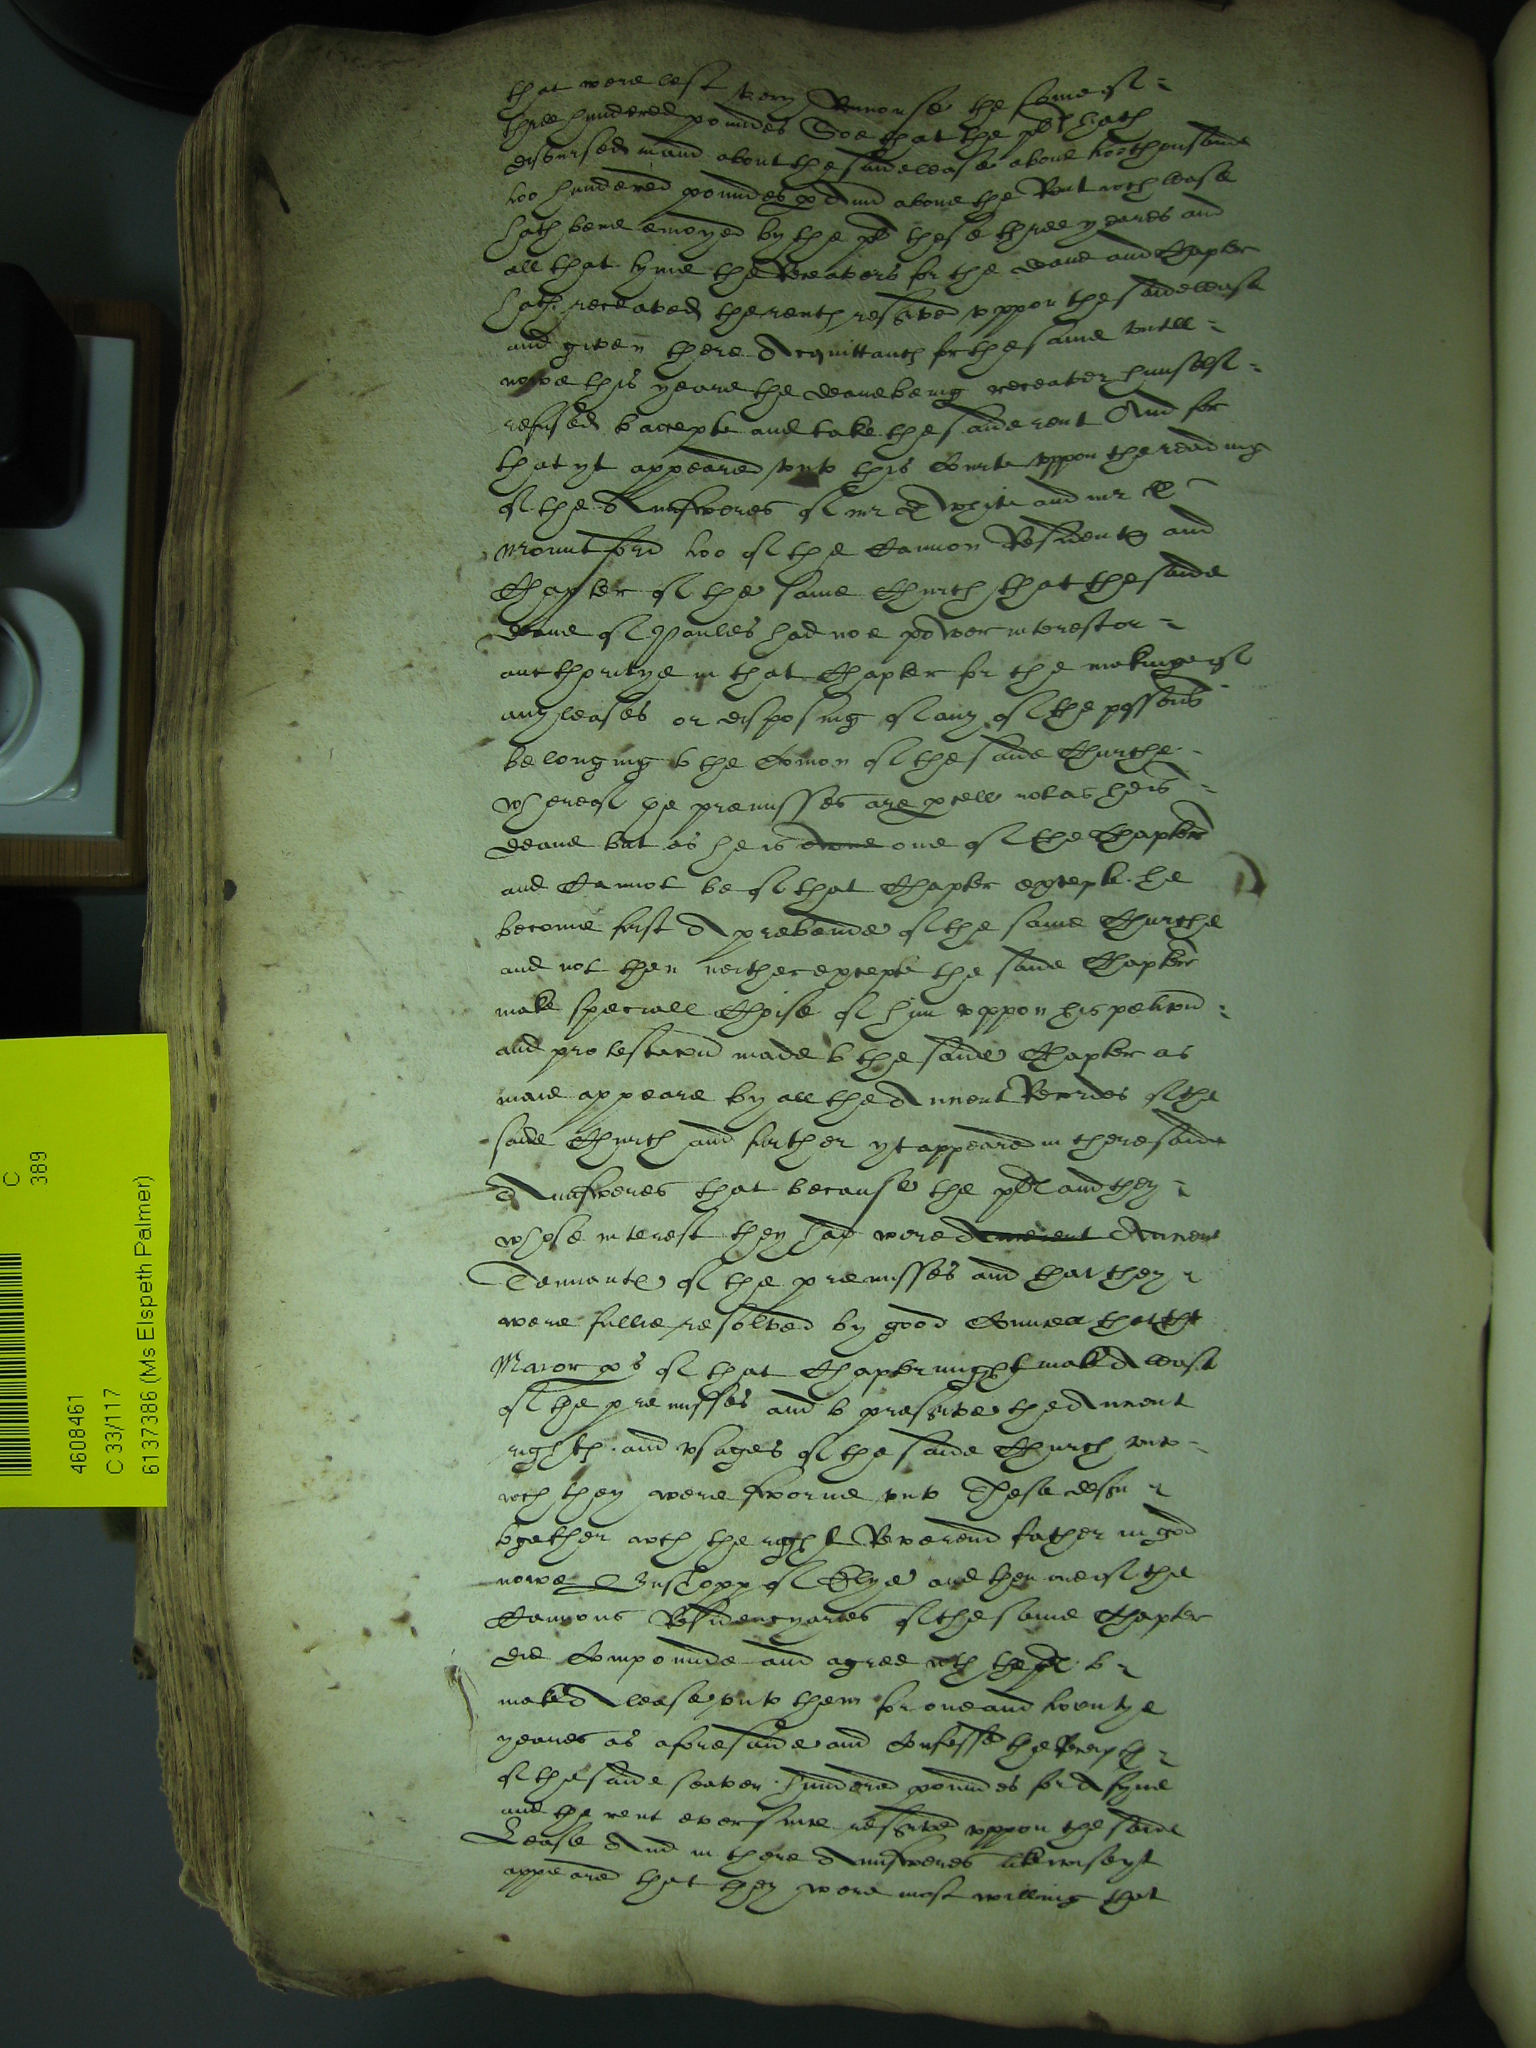 that were left very Ruinouse the some of =
three hundered poundes Soe that the pl hath
disbursed in and about the saide lease above two thousande
two hundered poundes and above the Rent wch lease
hath bene enioyed by the pl these three yeares and
all that tyme the Receavors for the deane and Chapter
hath receaved the rent reserved uppon the saide lease
and given there Acquittance for the same untill =
nowe this yeare the deane being receaver himself =
refused to accepte and take the saide rent And for
that yt appeared unto this Courte uppon the reading
of the Answeres of mr White and mr
Mountford two of the Cannon Residents and
Chapter of the same Church that the saide
deane of Paules had noe power interest or =
aucthoritye in that Chapter for the making of
any leases or disposing of any of the possessions
belonging to the Comon of the saide Churche
whereof the premisses are pcell not as he is =
deane but as he is one of the Chapter
and Cannot be of that Chapter excepte he
become first A prebende of the same Churche
and not then neither excepte the saide Chapter
make speciall Choise of him uppon his peticon =
and protestacon made to the saide Chapter as
maie appeare by all the Auncient Recordes of the
saide Church and further yt appeared in there saide
Answeres that because the pl and they =
whose interest they had were Auncient Auncient
Tennants of the premisses and that they
were fullie resolved by good Counsell that the
Maior ps of that Chapter might make A lease
of the premisses and to preserve the Auncient
rights and usages of the saide Church unto =
wch they were sworne unto These deftes
together wth the right Reverend father in god
nowe Busshopp of Elye and then one of the
Cannons Residencyaries of the same Chapter
did Compounde and agree wth the pl to
make A lease unto them for one and twentye
yeares as aforesaide and Confesse the Receipte =
of the saide seaven hundered poundes for A fyne
and the rent ever since reserved uppon the saide
Lease And in there Answeres likewise yt
appeared that they were most willing that
4608461
C 33/117
6137386 (Ms Elspeth Palmer)
C
389